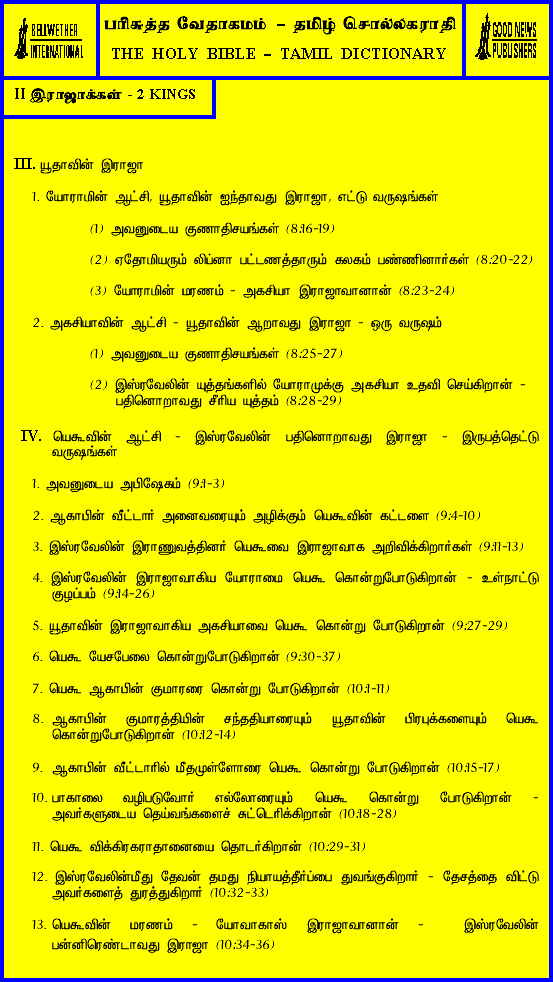 BELLWETHER
INTERNATIONAL
பரிசுத்த வேதாகமம் – தமிழ் சொல்லகராதி
THE HOLY BIBLE – TAMIL DICTIONARY
GOOD NEWS
PUBLISHERS
II இராஜாக்கள் - 2 KINGS
III. யூதாவின் இராஜா
1. யோராமின் ஆட்சி, யூதாவின் ஐந்தாவது இராஜா, எட்டு வருஷங்கள்
(1) அவனுடைய குணாதிசயங்கள் (8:16-19)
(2) ஏதோமியரும் லிப்னா பட்டணத்தாரும் கலகம் பண்ணினார்கள் (8:20-22)
(3) யோராமின் மரணம் - அகசியா இராஜாவானான் (8:23-24)
2. அகசியாவின் ஆட்சி - யூதாவின் ஆறாவது இராஜா - ஒரு வருஷம்
(1) அவனுடைய குணாதிசயங்கள் (8:25-27)
(2) இஸ்ரவேலின் யுத்தங்களில் யோராமுக்கு அகசியா உதவி செய்கிறான் -
பதினொறாவது சீரிய யுத்தம் (8:28-29)
IV. யெகூவின் ஆட்சி - இஸ்ரவேலின் பதினொறாவது இராஜா - இருபத்தெட்டு
வருஷங்கள்
1. அவனுடைய அபிஷேகம் (9:1-3)
2. ஆகாபின் வீட்டார் அனைவரையும் அழிக்கும் யெகூவின் கட்டளை (9:4-10)
3. இஸ்ரவேலின் இராணுவத்தினர் யெகூவை இராஜாவாக அறிவிக்கிறார்கள் (9:11-13)
4. இஸ்ரவேலின் இராஜாவாகிய யோராமை யெகூ கொன்றுபோடுகிறான் - உள்நாட்டு
குழப்பம் (9:14-26)
5. யூதாவின் இராஜாவாகிய அகசியாவை யெகூ கொன்று போடுகிறான் (9:27-29)
6. யெகூ யேசபேலை கொன்றுபோடுகிறான் (9:30-37)
7. யெகூ ஆகாபின் குமாரரை கொன்று போடுகிறான் (10:1-11)
8. ஆகாபின் குமாரத்தியின் சந்ததியாரையும் யூதாவின் பிரபுக்களையும் யெகூ
கொன்றுபோடுகிறான் (10:12-14)
9. ஆகாபின் வீட்டாரில் மீதமுள்ளோரை யெகூ கொன்று போடுகிறான் (10:15-17)
10. பாகாலை வழிபடுவோர் எல்லோரையும் யெகூ கொன்று போடுகிறான் -
அவர்களுடைய தெய்வங்களைச் சுட்டெரிக்கிறான் (10:18-28)
11. யெகூ விக்கிரகராதானையை தொடர்கிறான் (10:29-31)
12. இஸ்ரவேலின்மீது தேவன் தமது நியாயத்தீர்ப்பை துவங்குகிறார் - தேசத்தை விட்டு
அவர்களைத் துரத்துகிறார் (10:32-33)
13. யெகூவின் மரணம் - யோவாகாஸ் இராஜாவானான் - இஸ்ரவேலின்
பன்னிரெண்டாவது இராஜா (10:34-36)